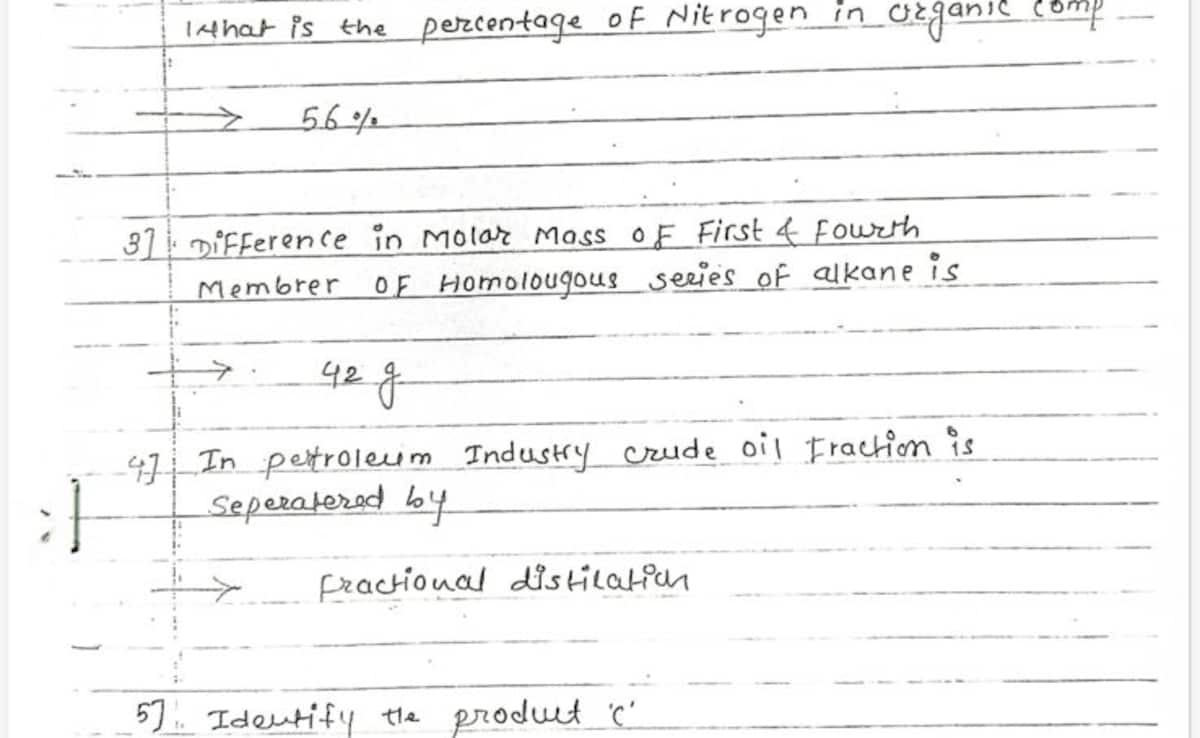 What is the percentage of Nitrogen in organic comp
→ 56 %
3] Difference in Molar Mass of First & Fourth
Membrer of Homolougous series of alkane is
→ 42 g
4] In petroleum Industry crude oil fraction is
Seperatered by
→ fractional distilation
5] Identify the product 'c'